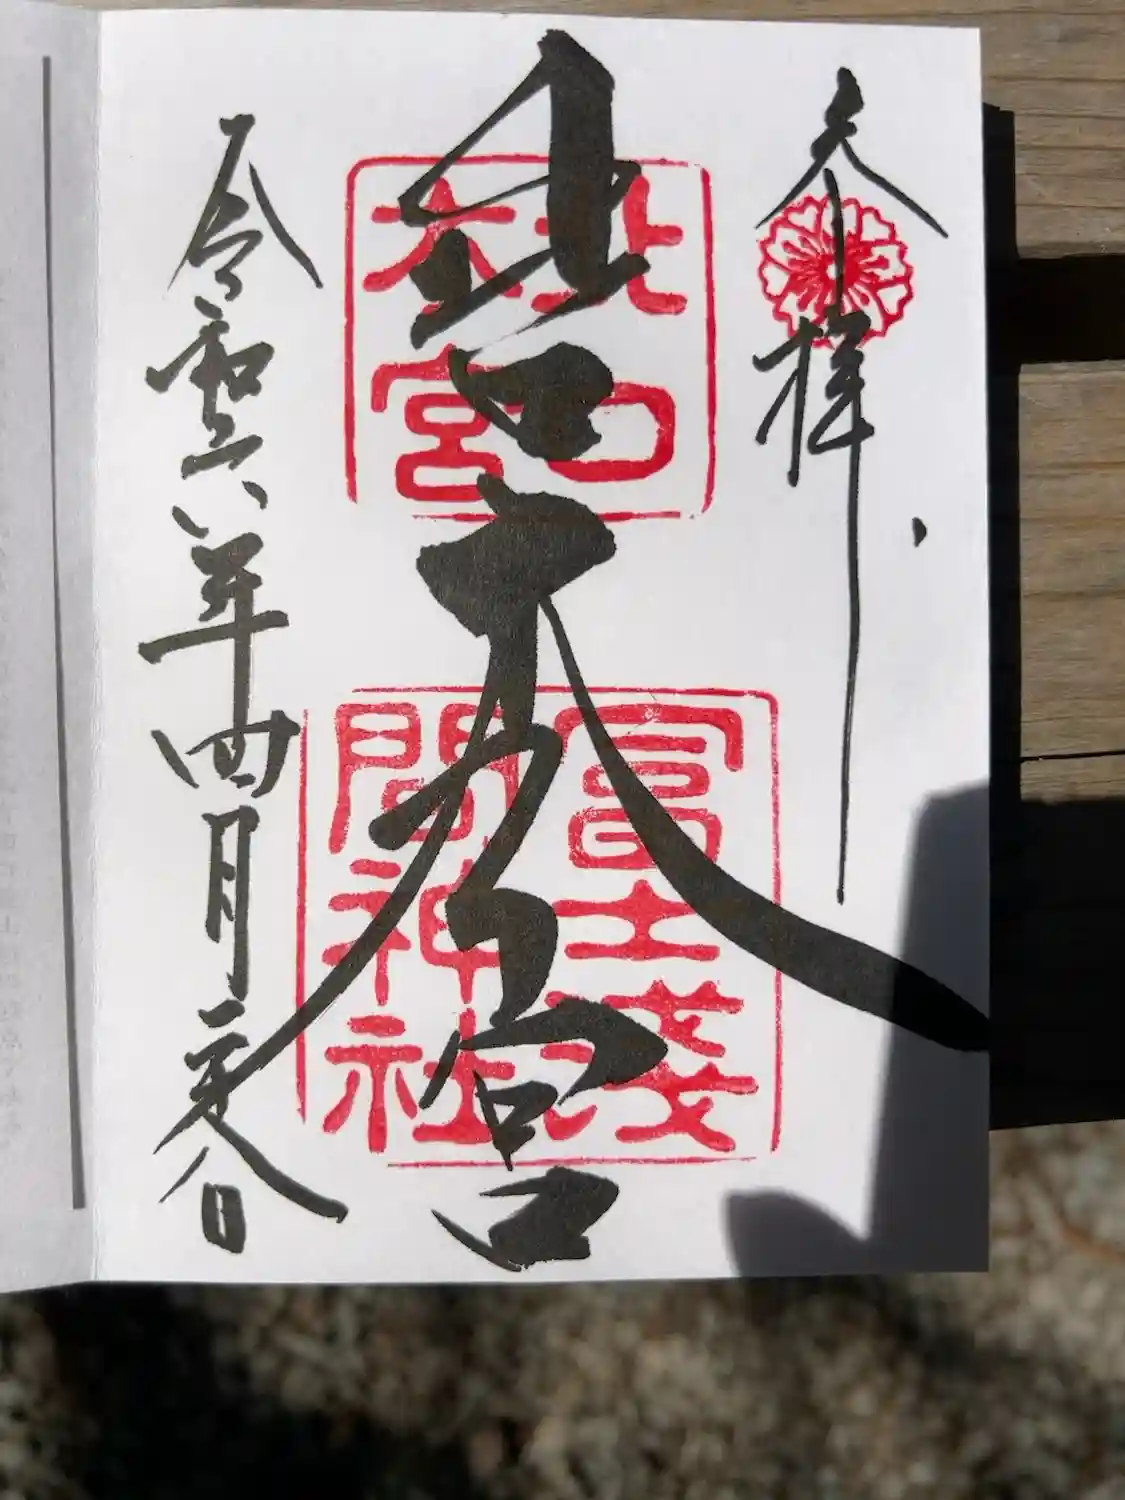 奉拝
北口本宮
北口
本宮
冨士淺
間神社
令和六年四月 日